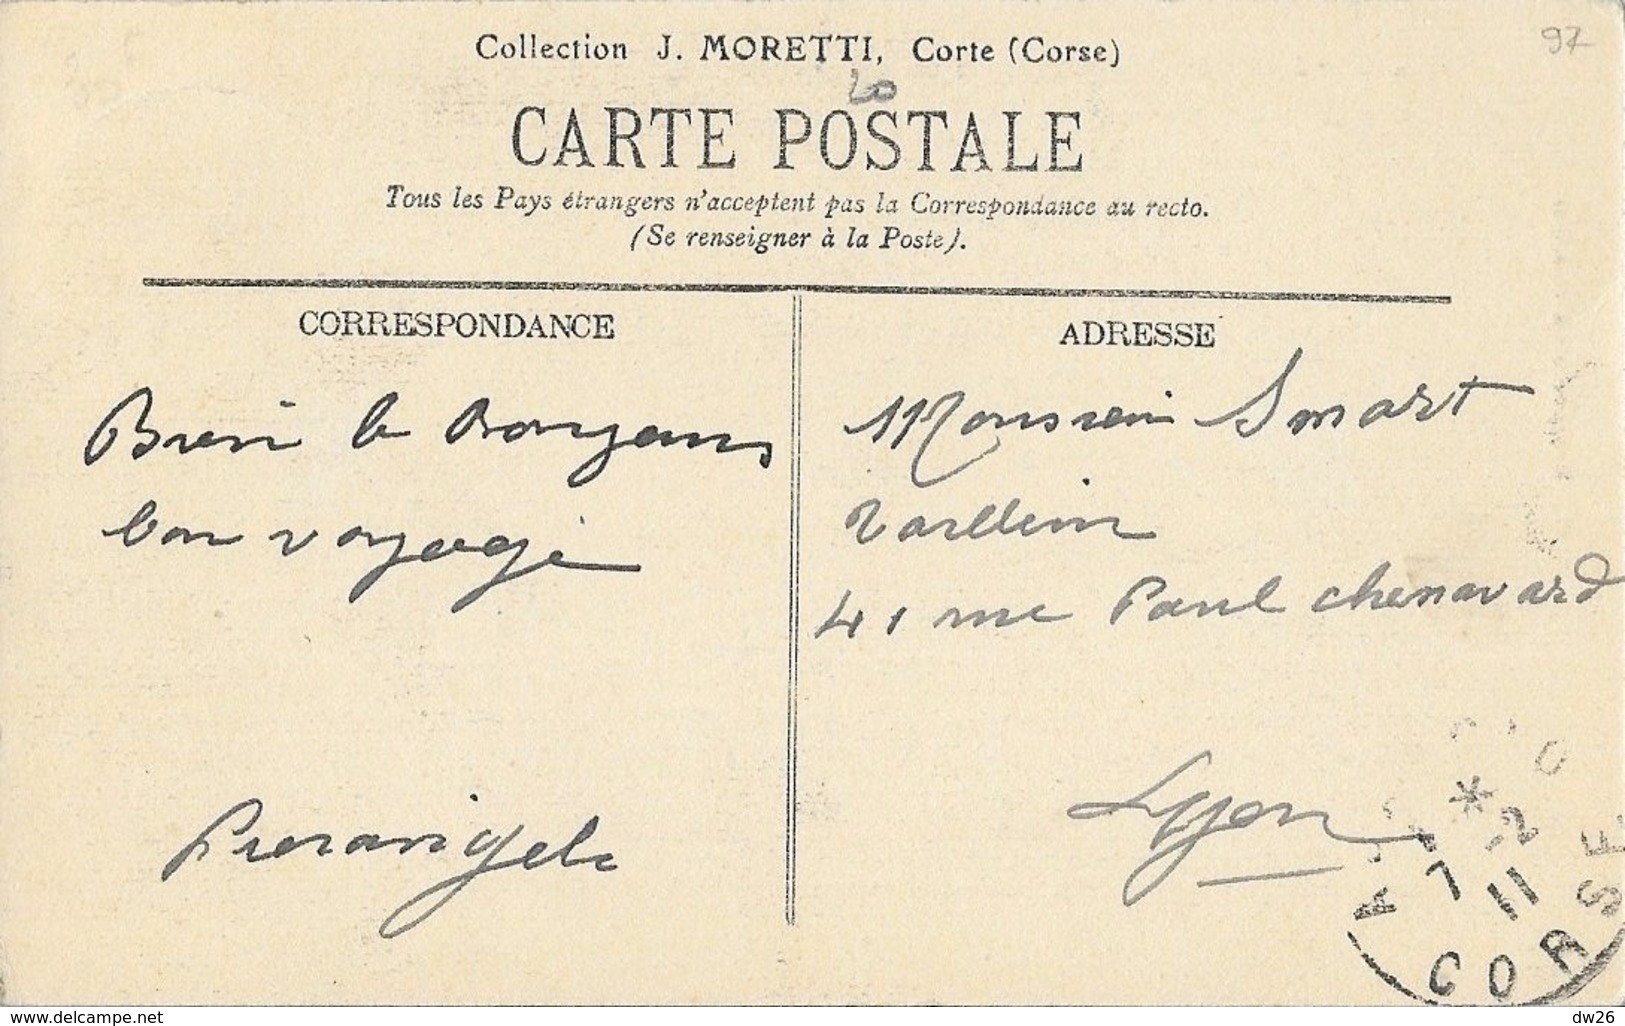 97
Collection J. MORETTI, Corte (Corse)
20
CARTE POSTALE
Tous les Pays étrangers n'acceptent pas la Correspondance au recto.
(Se renseigner à la Poste).
CORRESPONDANCE
ADRESSE
bon voyage
Pierangeli
Monsieur Smart
41 rue Paul chenavard
Lyon
7 -2
11
CORSE
www.delcampe.net
dw26